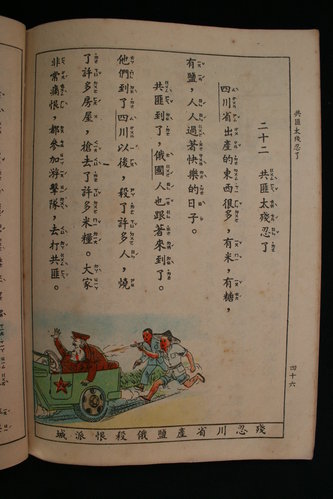 共匪太殘忍了
二十二　共匪太殘忍了
四川省出產的東西很多，有米，有糖，
有鹽，人人過著快樂的日子。
共匪到了，俄國人也跟著來到了。
他們到了四川以後，殺了許多人，燒
了許多房屋，搶去了許多米糧。大家
非常痛恨，都參加游擊隊，去打共匪。
四十六
殘忍川省產鹽俄殺恨派城